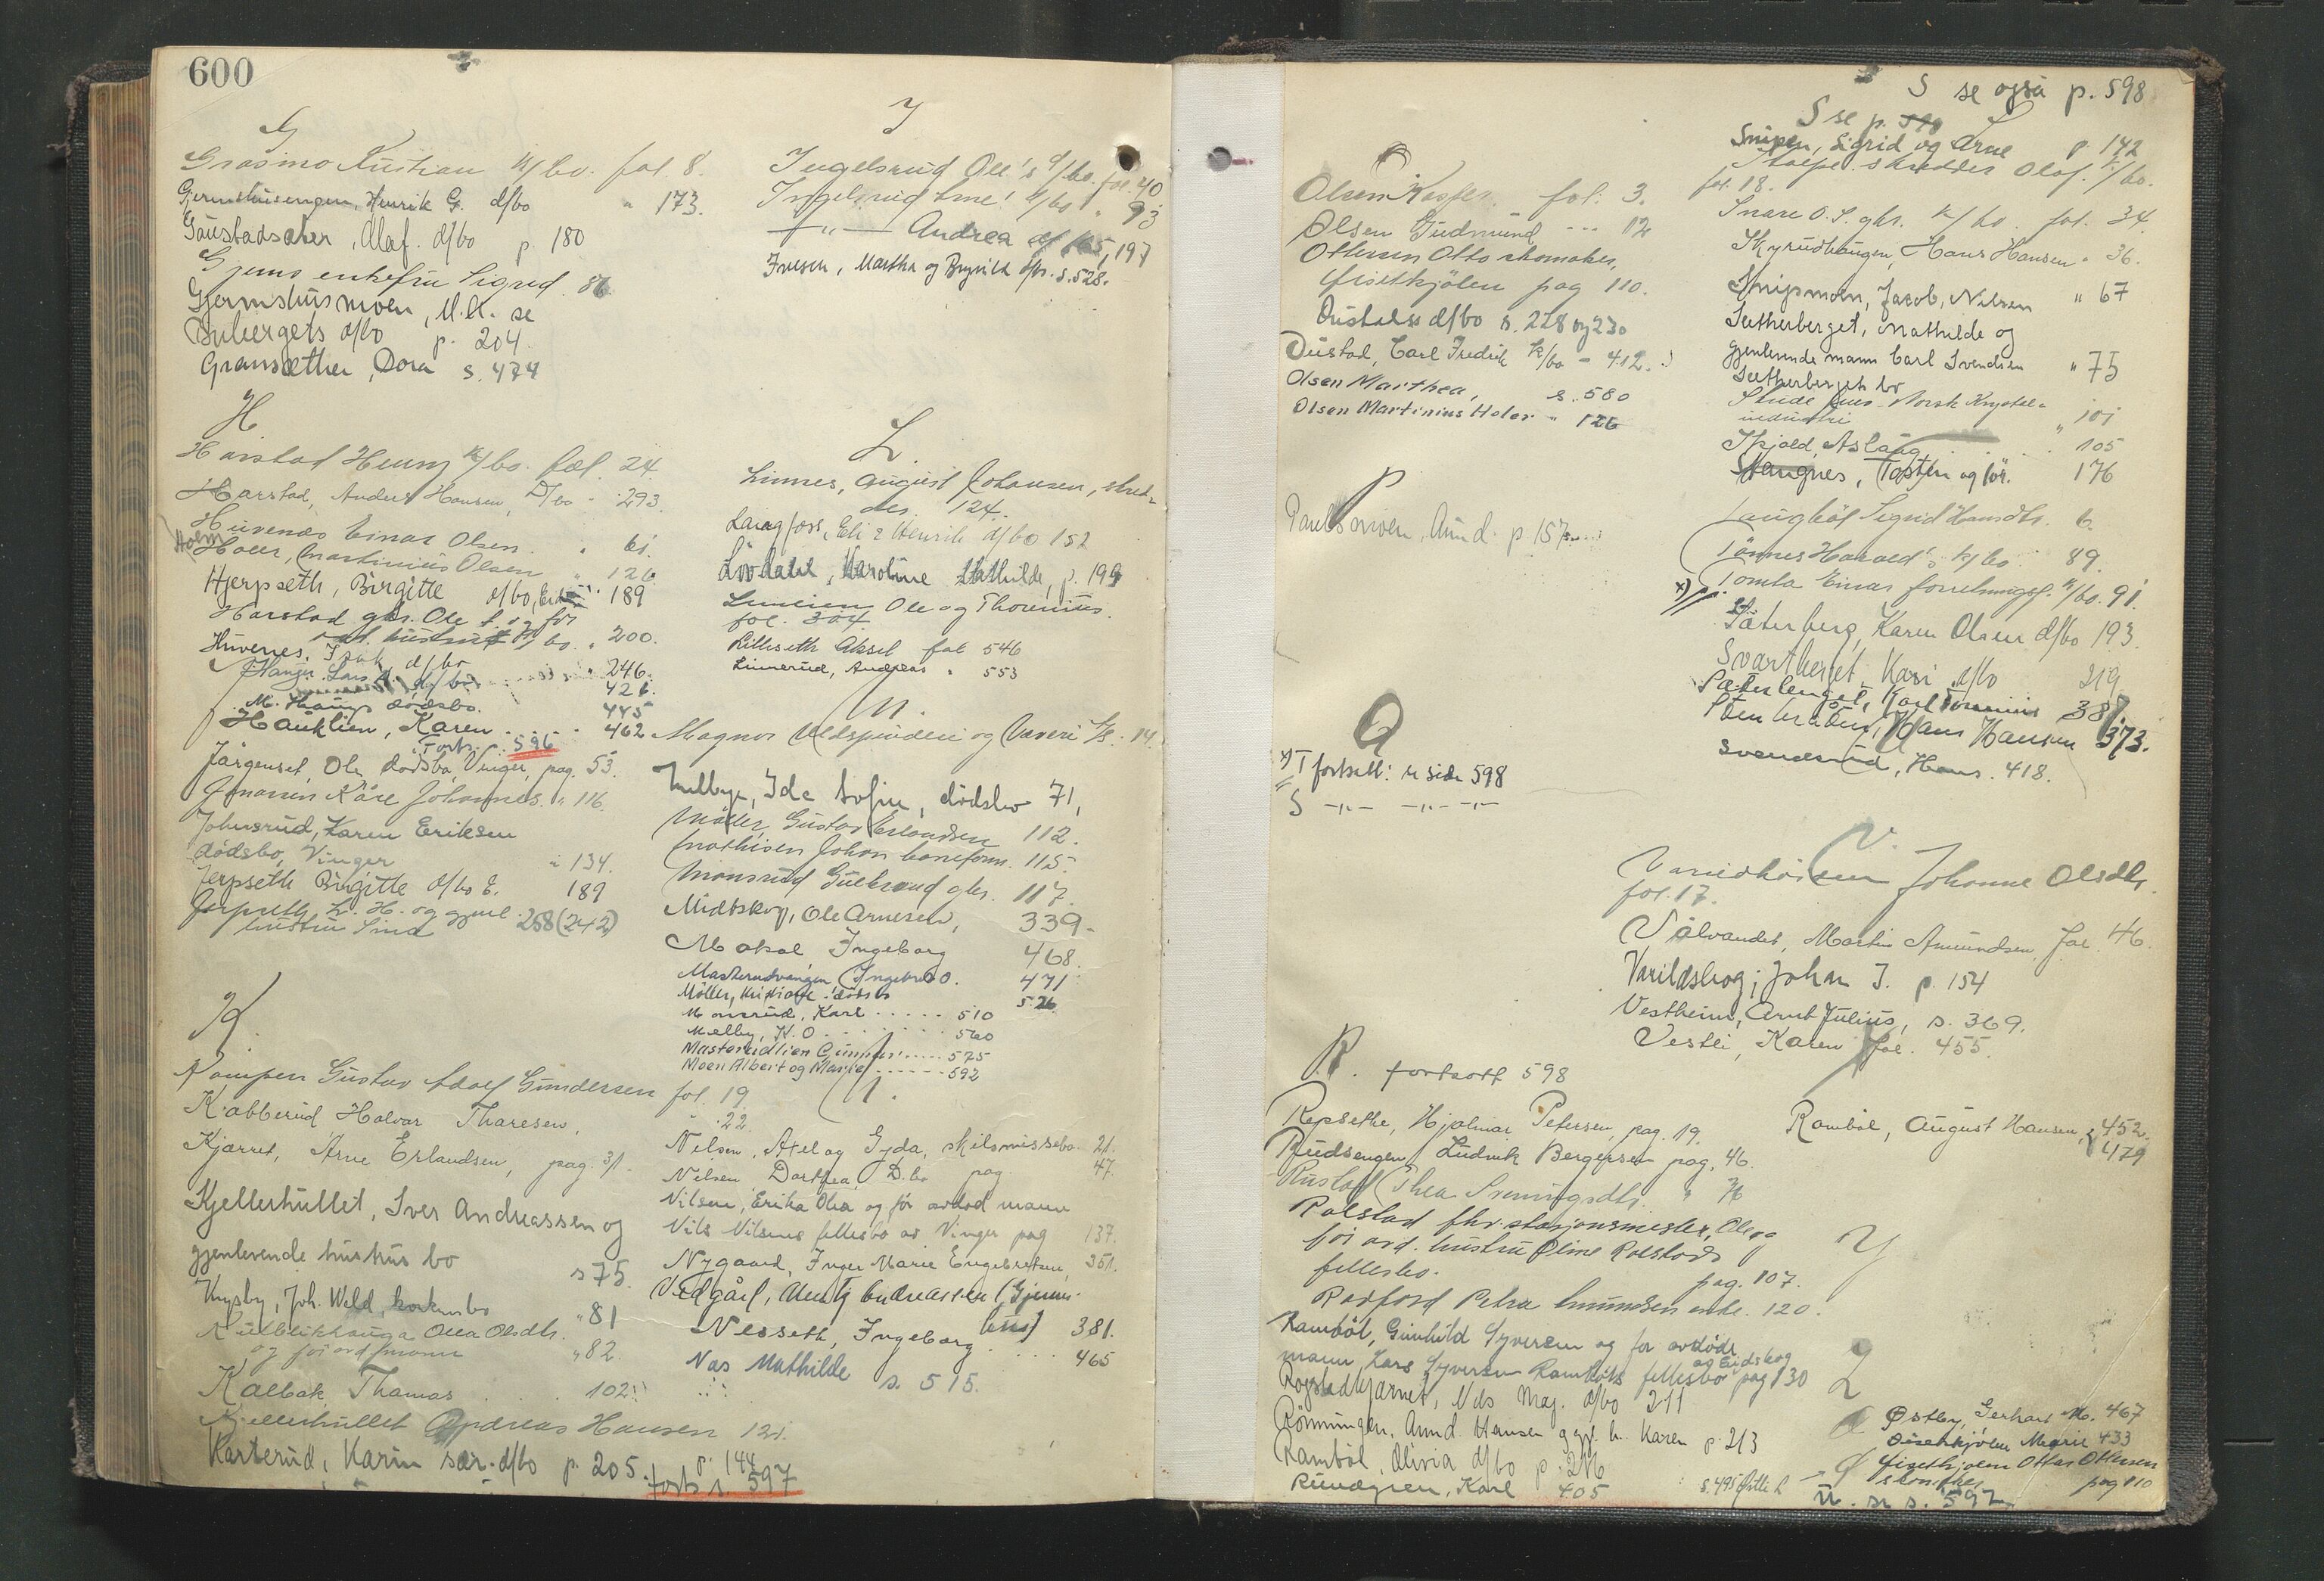 600
G
Grasmo Kristian k/bo. fol. 8.
Gjermshusengen, Henrik G. d/bo " 173.
Gaustadsæter, Olaf. d/bo p. 180
Gjems enkefru Sigrid. 86
Gjermshusmoen, M. K. se
d/bo p. 204.
Gransæther, Dora s. 474
H
Harstad Henry k/bo. fol. 24.
Harstad, Anders Hansen, D/bo - 293.
Huvenes Einar Olsen. " 61.
Holm
Holer, Martinius Olsen " 126
Hjerpseth, Birgitte d/bo, 189
Harstad gbr. Ole
bo. " 200.
Huvenes, Isak d/bo 246.
Lars d/bo 421.
M. dødsbo. 445
Hauklien, Karen . . . 462
Forts. 596
Jargenset, Ole dødsbo, Vinger, pag. 53.
Jonassen Kåre Johannes. " 116.
Johnsrud, Karen Eriksen
dödsbo, Vinger " 134.
Jerpseth Birgitte d/bo E. 189
Jerpseth L. H. og gjenl.
hustru Lina 258 (242)
K
Kampen Gustav Adolf Gundersen fol. 19.
Kabberud Halvor Tharesen, " 22.
Kjærret, Arne Erlandsen, pag. 31.
Kjellerhullet, Iver Andreassen og
gjenlevende hustrus bo s 75.
Knysby, Joh. Weld, konkursbo " 81
Olea Olsdtr.
og for avd mann " 82.
Kalbak, Thomas . . . 102
Kjellerhullet Andreas Hansen 121.
p. 144
Karterud, Karin sær. d/bo p. 205.
forts s. 597
I
Ingelsrud Ole's d/bo. fol. 40
Ingelsrud Arne's k/bo " 93
— " — Andrea d/bo s, 197
Iversen, Martha og Brynild d/bo. s. 528.
L
Linnes, August Johansen, skred-
der. 124.
Langfoss, Eli & Henrik d/bo 152
Lövdahl, Karoline Mathilde, p. 199
Ole og Thorenius.
fol. 304
Lilleseth Aksel fol 546
Linnerud, Andreas " 553
M.
Magnor Uldspinderi og Væveri k/s. 14.
Melbye, Ida Sofie, dödsbo 71,
Möller Gustav Erlandsen 112.
Mathisen Johan baneform. 115.
Monsrud Gulbrand gbr. 117.
Midtskog, Ole Arnesen, 339-
Moksal Ingeborg 468.
Masterudvangen Ingebret O. 471
Möller, Kristiane dödsbo 526
Monsrud, Karl . . . . . 510
Melby, K. O . . . . . 560
Masterudlien Gunnar . . . . . 575
Moen Albert og Marie . . . . . . 592
N.
Nelsen, Axel og Gyda, skilsmissebo. 21.
Nelsen Dorthea, D.bo pag. 47.
Nilsen, Erika Olea og for avdöd mann
Nils Nilsens fellesbo av Vinger pag 137.
Nygaard, Inger Marie Engebretsen, 351.
Nedgård, Andreassen (Gjerms-
hus) 381.
Nesseth, Ingeborg . . . . 465
Nas Mathilde s. 515.
O
Olsen Kasper. fol. 3.
Olsen Gudmund --- 12
Ottersen Otto skomaker,
fisetkjölen pag 110.
Oustads d/bo s. 228 og 230
Oustad, Carl Fredrik k/bo - 412.
Olsen Marthea, s. 580
Olsen Martinius Holer " 126
P
Paulsmoen, Amund. p 157
Q
x) T fortsett: se side 598
S -"- -"- -"-
R. fortsatt 598
Repsethe, Hjalmar Petersen, pag. 19.
Rudsengen, Ludvik Bergersen pag. 46.
Rustad Thea " 76
Rolstad fhv. stasjonsmester, Ole og
for avd. hustru Oline Rolstads
fellesbo. pag. 107.
Rosfoss Petra Amundsen enke. 120.
Ramböl, Gunhild Syversen og for avdöde
mann Lars Syversen Ramböls fellesbo av Eidskog pag 130
Rogstadkjærnet, Nils Mag. d/bo 211
Rönningen, Amund Hansen g gjl. h. Karen p. 213
Ramböl, Olivia d/bo p. 216
Rundgren, Karl 405
S se også p. 598
S se p.
Snipen, Sigrid og Arne p. 142
skredder Olof. k/bo.
fol. 18.
Snare O. S. gbr. k/bo. fol. 34.
Skyrudhaugen, Hans Hansen " 36.
Snipmoen, Jacob, Nilsen " 67
Sætherberget, Mathilde og
gjenlevende mann Carl Svendsen
Sætherbergets bo " 75
Norsk Krystal-
industri " 101
Skjold, Aslaug . . . . 105
Stangnes, Torsten og för. 176
Sigrid 6.
Tönnes Harald's k/bo 89.
x) Tomta Einar forretningsf. k/bo. 91.
Säterberg, Karen Olsen d/bo 193.
Svartberget, Kari d/bo 219
Sæterberget, Karl 387
Hans Hansen 373.
Svenserud, Hans. 418.
V.
Johanne Olsdtr.
fol. 17.
Vålvandet, Martin Amundsen, fol. 46.
Varildskog, Johan I. p. 154
Vestheim, Arnt Julius, s. 369.
Vestli, Karen fol. 455.
Ramböl, August Hansen, 452.
479
Y
Z
Østby, Gerhart M. 467
Marie 433
Ø fisetkjölen Otto Ottersen
skomaker pag 110
s. 495
U. se s. 597